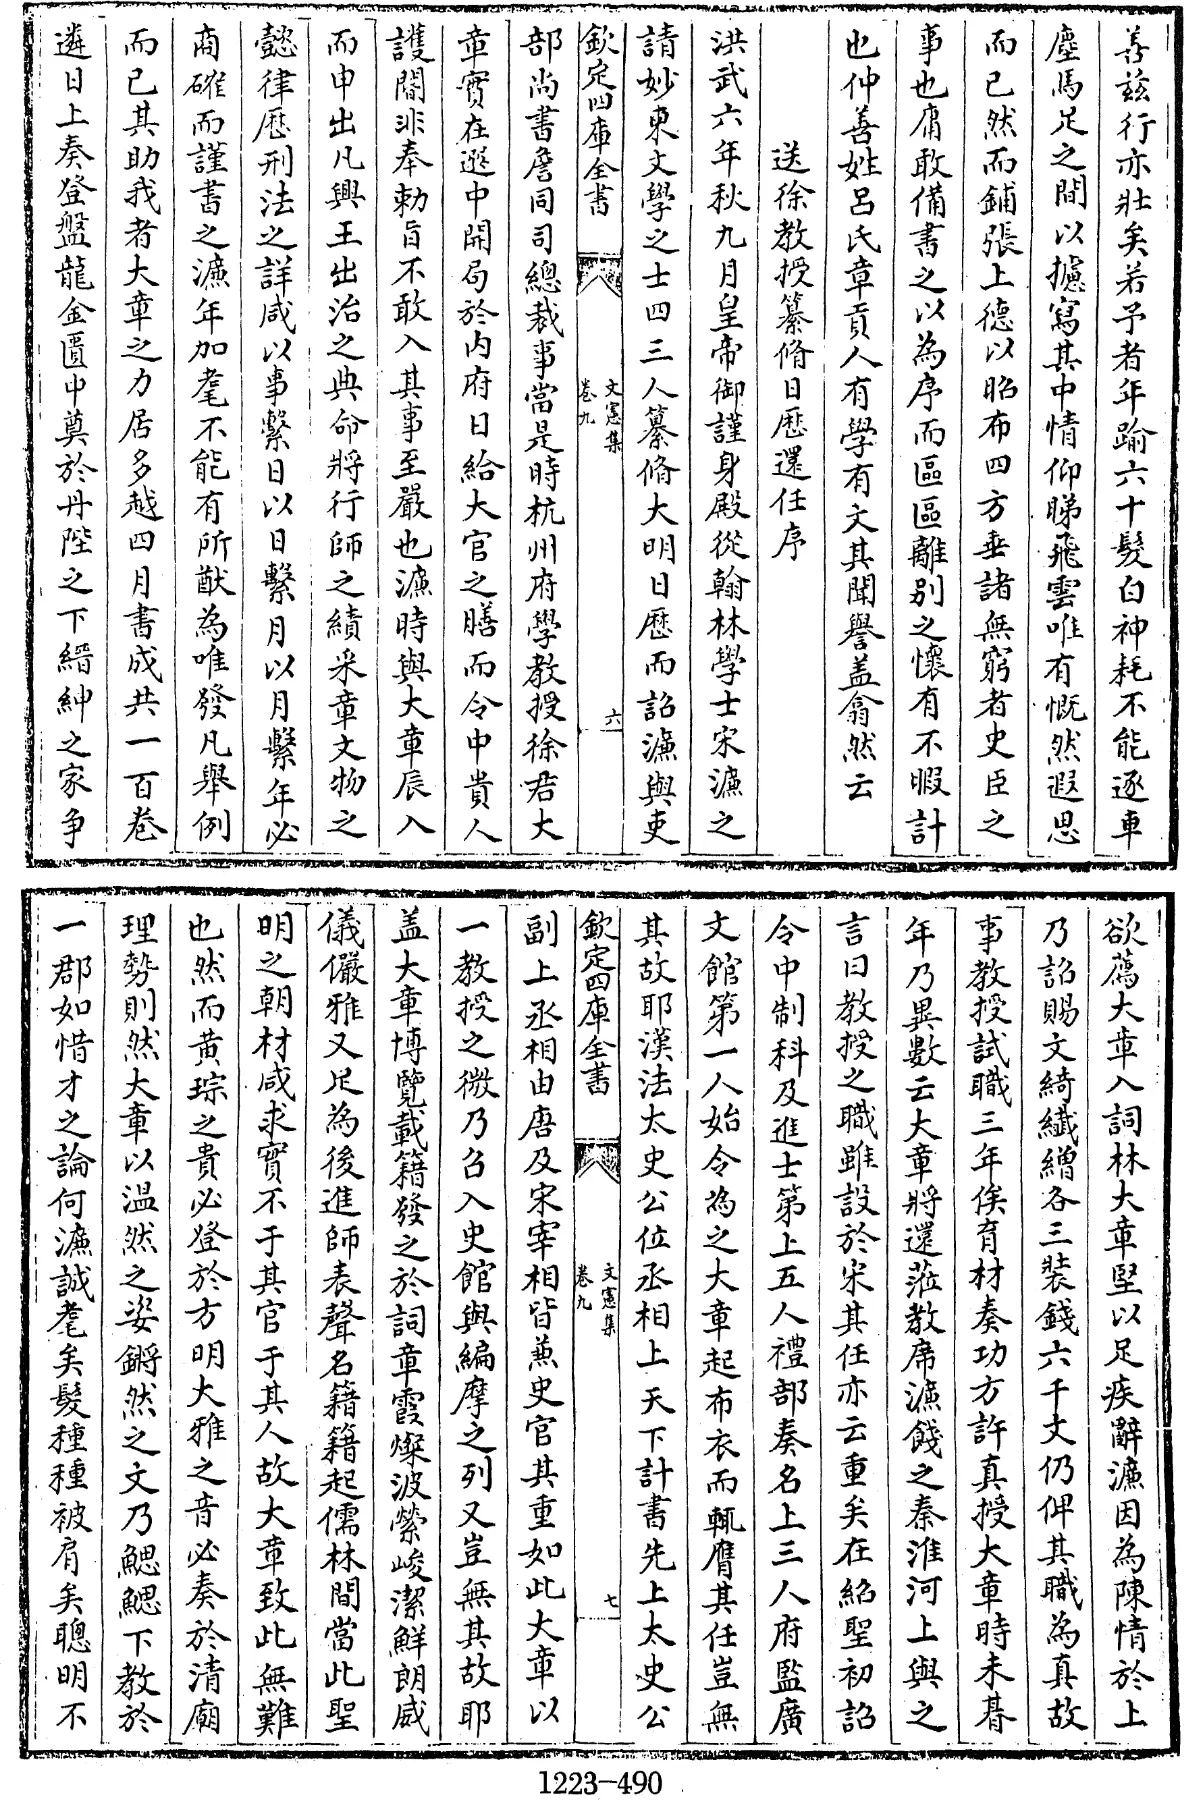 善兹行亦壯矣若予者年踰六十髮白神耗不能逐車
塵馬足之間以攄寫其中情仰睇飛雲唯有慨然遐思
而已然而鋪張上德以昭布四方垂諸無窮者史臣之
事也庸敢備書之以為序而區區離别之懷有不暇計
也仲善姓吕氏章貢人有學有文其聞譽盖翕然云
送徐教授纂脩日厯還任序
洪武六年秋九月皇帝御謹身殿從翰林學士宋濂之
請妙柬文學之士四三人纂脩大明日厯而詔濂與吏
欽定四庫全書
文憲集
卷九
六
部尚書詹同司總裁事當是時杭州府學教授徐君大
章實在選中開局於内府日給大官之膳而令中貴人
護閽非奉勅旨不敢入其事至嚴也濂時與大章辰入
而申出凡興王出治之典命將行師之績采章文物之
懿律厯刑法之詳咸以事繫日以日繫月以月繫年必
商確而謹書之濂年加耄不能有所猷為唯發凡舉例
而已其助我者大章之力居多越四月書成共一百卷
遴日上奏登盤龍金匱中奠於丹陛之下縉紳之家争
欲薦大章入詞林大章堅以足疾辭濂因為陳情於上
乃詔賜文綺纎繒各三裝錢六千文仍俾其職為真故
事教授試職三年俟育材奏功方許真授大章時未朞
年乃異數云大章將還涖教席濂餞之秦淮河上與之
言曰教授之職雖設於宋其任亦云重矣在紹聖初詔
令中制科及進士第上五人禮部奏名上三人府監廣
文館第一人始令為之大章起布衣而輒膺其任豈無
其故耶漢法太史公位丞相上天下計書先上太史公
欽定四庫全書
文憲集
卷九
七
副上丞相由唐及宋宰相皆兼史官其重如此大章以
一教授之微乃召入史館與編摩之列又豈無其故耶
盖大章博覽載籍發之於詞章霞燦波縈峻潔鮮朗威
儀儼雅又足為後進師表聲名籍籍起儒林間當此聖
明之朝材咸求實不于其官于其人故大章致此無難
也然而黄琮之貴必登於方明大雅之音必奏於清廟
理勢則然大章以温然之姿鏘然之文乃鰓鰓下教於
一郡如惜才之論何濂誠耄矣髮種種被肩矣聰明不
1223-490